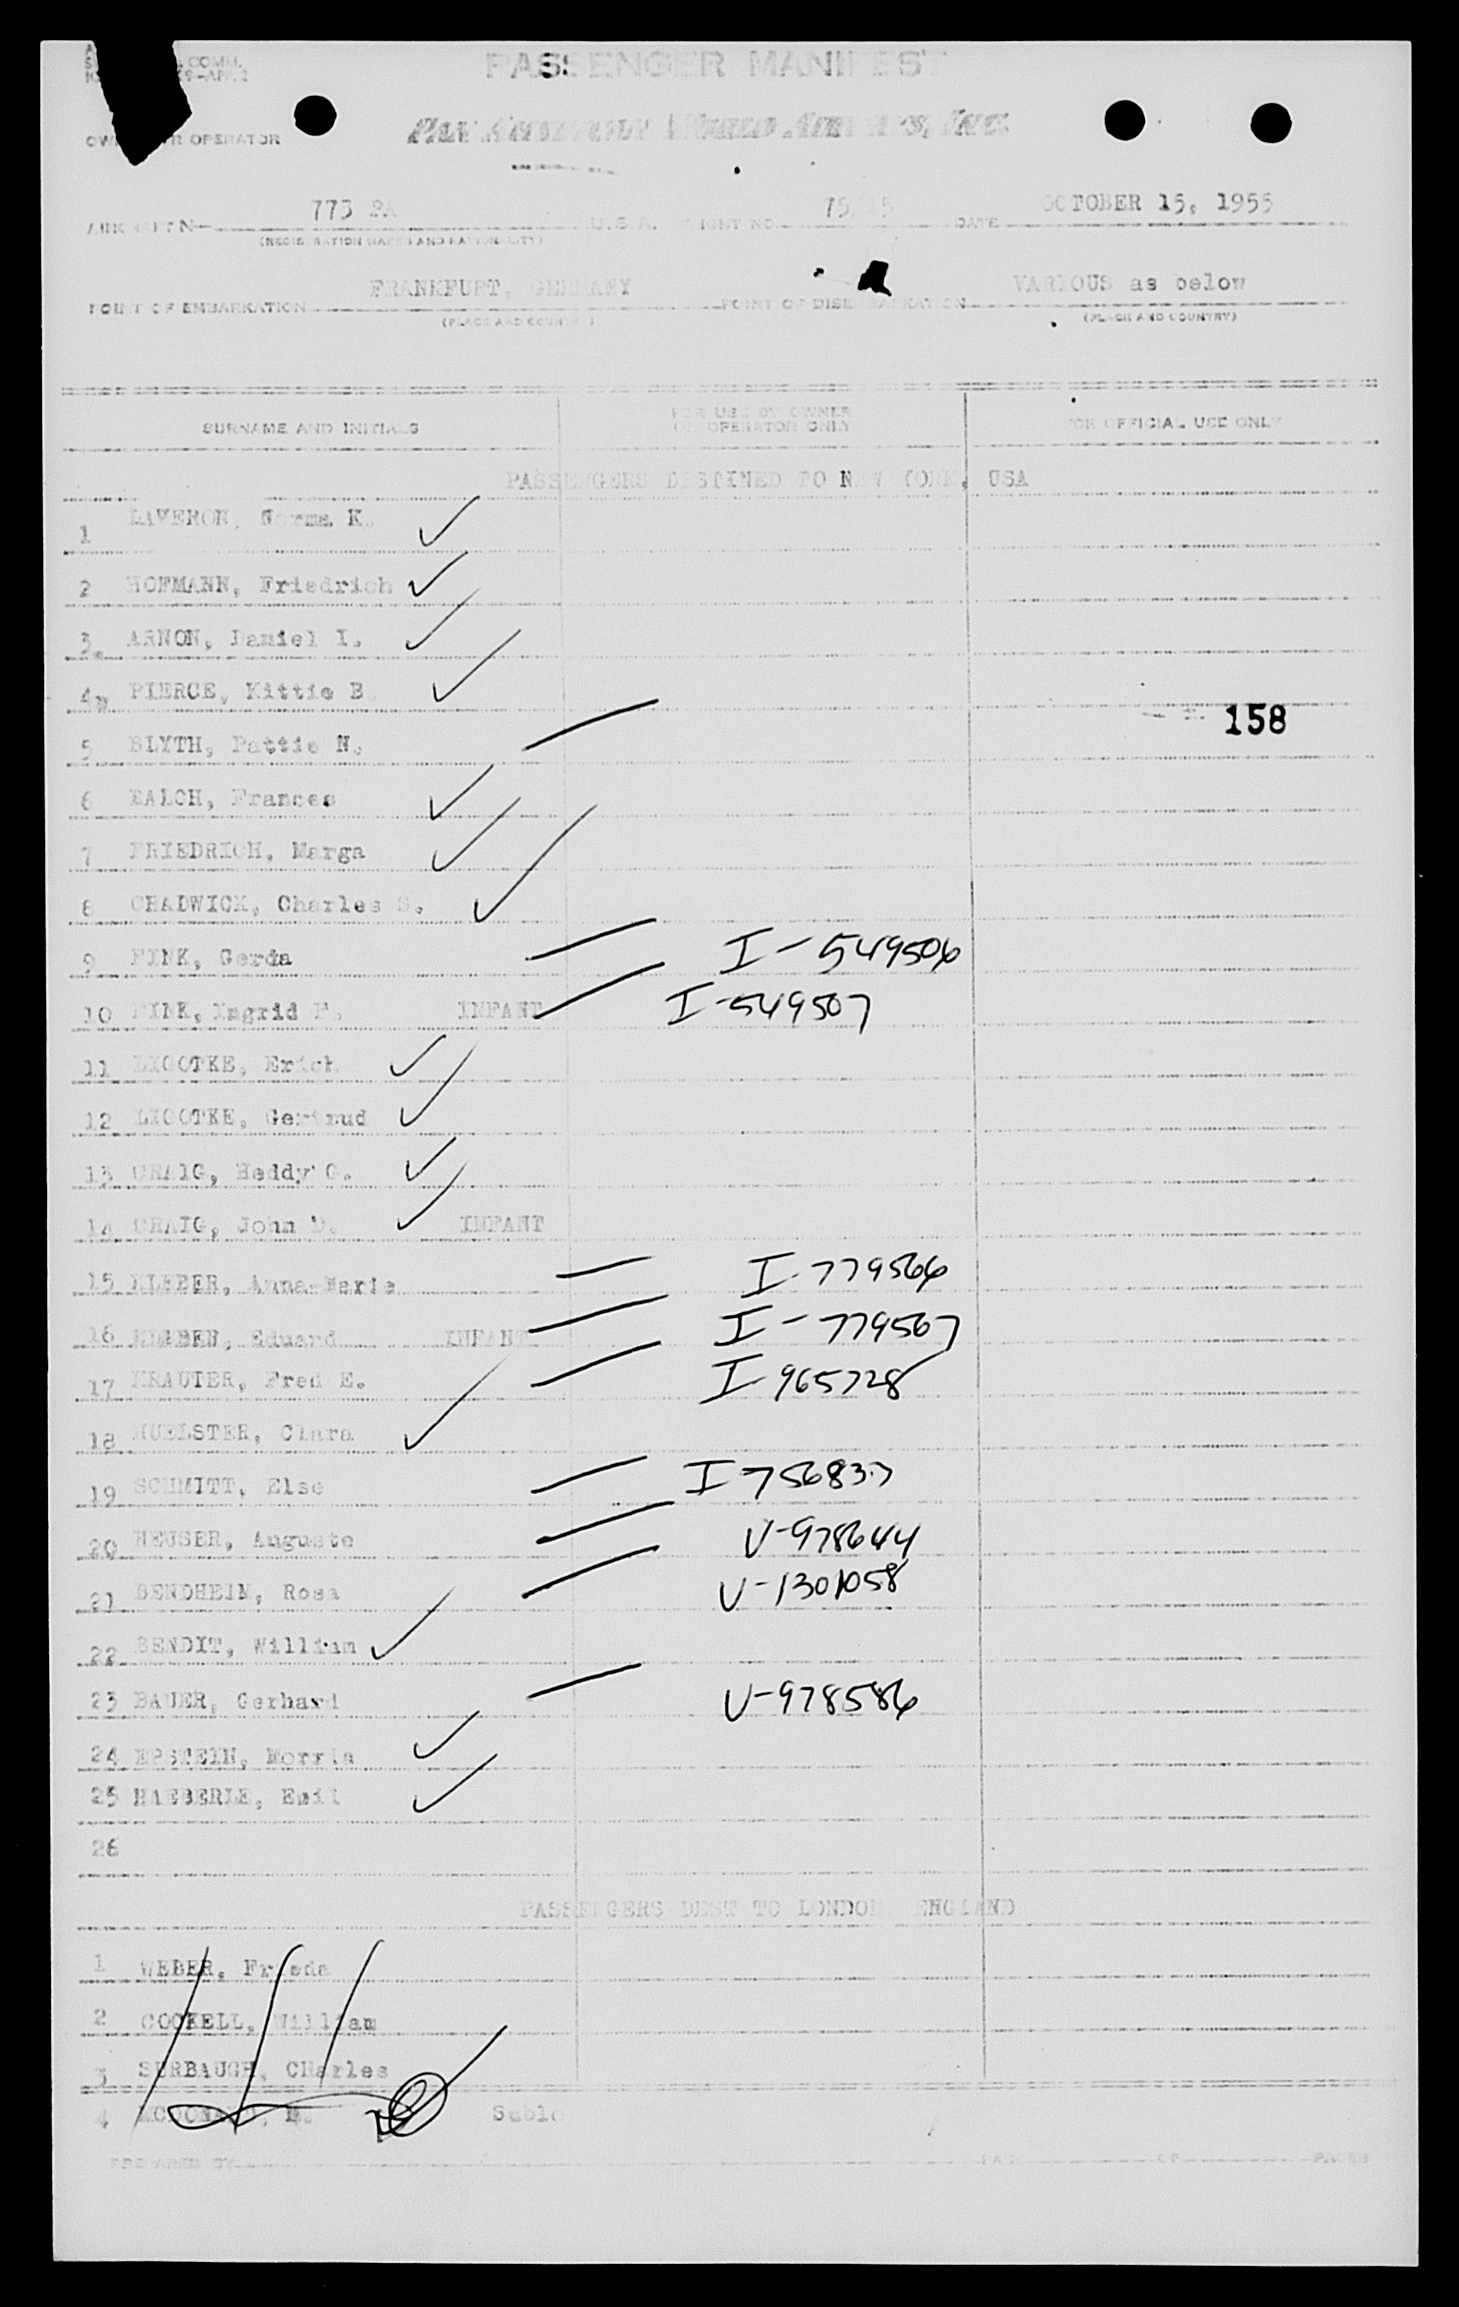 COMM.
PASSENGER MANIFEST
OPERATOR
PAN AMERICAN WORLD AIRWAYS, INC.
773 PA U.S.A. FLIGHT NO. 75/15 DATE OCTOBER 15, 1955
(REGISTRATION MARKS AND NATIONALITY)
POINT OF EMBARKATION FRANKFURT, GERMANY POINT OF DISEMBARKATION VARIOUS as below
(PLACE AND COUNTRY) (PLACE AND COUNTRY)
SURNAME AND INITIALS FOR USE BY OWNER OR OPERATOR ONLY FOR OFFICIAL USE ONLY
PASSENGERS DESTINED TO NEW YORK, USA
1 Norma K.
2 HOFMANN, Friedrich
3. ARNON, Daniel I.
4 PIERCE, Kittie B.
158
5 BLYTH, Pattie N.
6 BALCH, Frances
7 FRIEDRICH, Marga
8 CHADWICK, Charles S.
9 FINK, Gerda I-549506
10 FINK, Ingrid F. INFANT I-549507
11 LIGOTKE, Erich
12 LIGOTKE, Gertrud
13 CRAIG, Heddy G.
14 CRAIG, John D. INFANT
15 KLEBER, Anna-Merle I-779566
16 Eduard INFANT I-779567
17 KRAUTER, Fred E. I-965728
18 HUELSTER, Clara
19 SCHMITT, Else I-756837
20 HEUSER, Auguste V-978644
21 BENDHEIM, Rosa V-1301058
22 BENDIT, William
23 BAUER, Gerhard V-978586
24 EPSTEIN, Morris
25 HAEBERLE, Emil
26
PASSENGERS DEST TO LONDON ENGLAND
1 WEBER, Frieda
2 COCKELL, William
3 SURBAUGH, CHarles
4 MCDONALD, E. Sublo
PREPARED BY PAGE OF PAGES